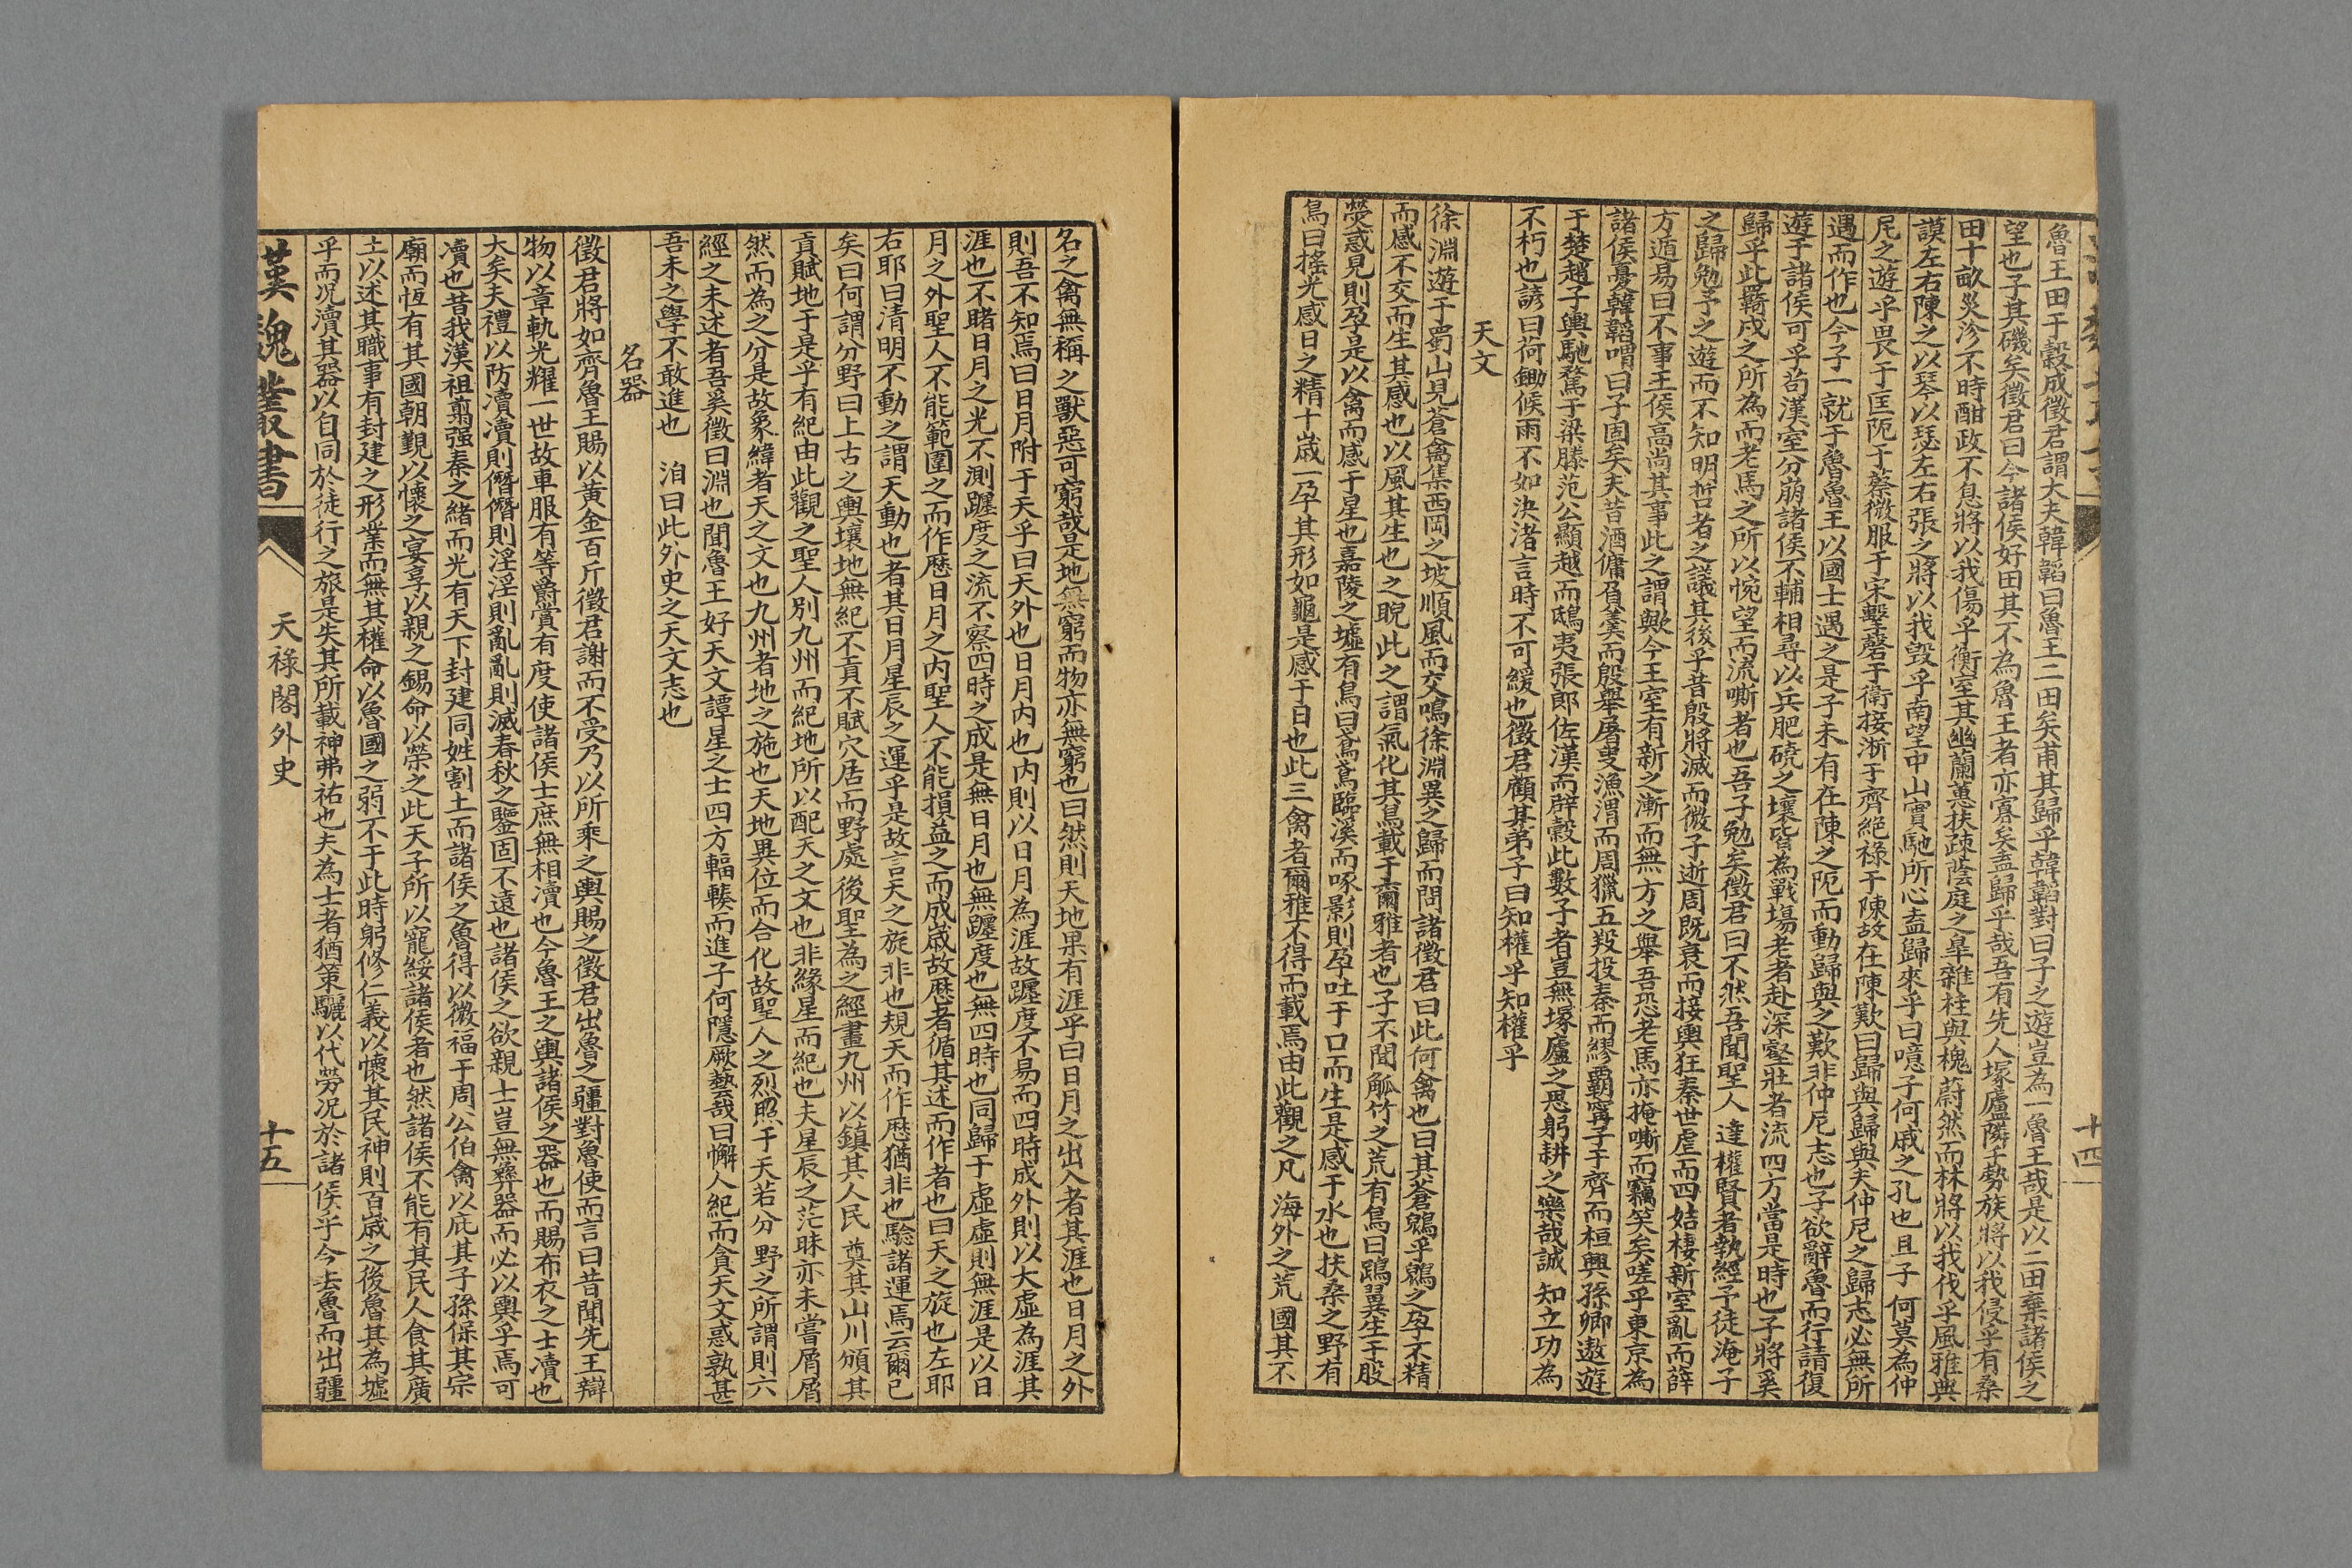 魯王田于穀成徵君謂大夫韓韜曰魯王二田矣甫其歸乎韓韜對曰子之遊豈為一魯王哉是以二田棄諸侯之
望也子其磯矣徵君曰今諸侯好田其不為魯王者亦寡矣盍歸乎哉吾有先人塚廬隣于勢族將以我侵乎有桑
田十畝災沴不時酣政不息將以我傷乎衡室其幽蘭蕙扶疎蔭庭之皐雜桂與槐蔚然而林將以我伐乎風雅典
謨左右陳之以琴以瑟左右張之將以我毀乎南望中山實馳所心盍歸來乎曰噫子何戚之孔也且子何莫為仲
尼之遊乎畏于匡阨于蔡微服于宋擊磬于衛接淅于齊絕祿于陳故在陳歎曰歸與歸與夫仲尼之歸志必無所
遇而作也今子一就于魯魯王以國士遇之是子未有在陳之阨而動歸與之歎非仲尼志也子欲辭魯而行請復
遊于諸侯可乎苟漢室分崩諸侯不輔相尋以兵肥磽之壤皆為戰場老者赴深壑壯者流四方當是時也子將奚
歸乎此羇戍之所為而老馬之所以惋望而流嘶者也吾子勉矣徵君曰不然吾聞聖人達權賢者執經予徒淹子
之歸勉予之遊而不知明哲者之議其後乎昔殷將滅而微子逝周既衰而接輿狂秦世虐而四姞棲新室亂而薛
方遁易曰不事王侯高尚其事此之謂歟今王室有新之漸而無方之舉吾恐老馬亦掩嘶而竊笑矣嗟乎東京為
諸侯憂韓韜喟曰子固矣夫昔酒傭負羹而殷舉屠叟漁渭而周獵五羖投秦而繆覇甯子干齊而桓興孫卿遨遊
于楚趙子輿馳騖于梁滕范公顯越而鴟夷張郎佐漢而辟穀此數子者豈無塚廬之思躬耕之樂哉誠知立功為
不朽也諺曰荷鋤候雨不如決渚言時不可緩也徵君顧其弟子曰知權乎知權乎
天文
徐淵遊于蜀山見蒼禽集西岡之坡順風而交鳴徐淵異之歸而問諸徵君曰此何禽也曰其蒼鶂乎鶂之孕不精
而感不交而生其感也以風其生也之睨此之謂氣化其鳥載于爾雅者也子不聞觚竹之荒有鳥曰鵶翼生于股
熒惑見則孕是以禽而感于星也嘉陵之墟有鳥曰鳶鳶臨溪而啄影則孕吐于口而生是感于水也扶桑之野有
鳥曰搖光感日之精十歲一孕其形如龜是感于日也此三禽者爾雅不得而載焉由此觀之凡海外之荒國其不
十四
名之禽無稱之獸惡可窮哉是地無窮而物亦無窮也曰然則天地果有涯乎曰日月之出入者其涯也日月之外
則吾不知焉曰日月附于天乎曰天外也日月內也內則以日月為涯故躔度不易而四時成外則以大虛為涯其
涯也不睹日月之光不測躔度之流不察四時之成是無日月也無躔度也無四時也同歸于虛虛則無涯是以日
月之外聖人不能範圍之而作曆日月之內聖人不能損益之而成歲故曆者循其述而作者也曰天之旋也左耶
右耶曰清明不動之謂天動也者其日月星辰之運乎是故言天之旋非也規天而作曆猶非也驗諸運焉云爾已
矣曰何謂分野曰上古之輿壤地無紀不貢不賦穴居而野處後聖為之經畫九州以鎮其人民奠其山川頒其
貢賦地于是乎有紀由此觀之聖人別九州而紀地所以配天之文也非緣星而紀也夫星辰之茫昧亦未嘗屑屑
然而為之分是故象緯者天之文也九州者地之施也天地異位而合化故聖人之烈照于天若分野之所謂則六
經之未述者吾奚徵曰淵也聞魯王好天文譚星之士四方輻輳而進子何隱厥藝哉曰懈人紀而貪天文惑孰甚
吾未之學不敢進也 洎曰此外史之天文志也
名器
徵君將如齊魯王賜以黃金百斤徵君謝而不受乃以所乘之輿賜之徵君出魯之疆對魯使而言曰昔聞先王辯
物以章軌光耀一世故車服有等爵賞有度使諸侯士庶無相瀆也今魯王之輿諸侯之器也而賜布衣之士瀆也
大矣夫禮以防瀆瀆則僭僭則淫淫則亂亂則滅春秋之鑒固不遠也諸侯之欲親士豈無彝器而必以輿乎焉可
瀆也昔我漢祖翦强秦之緒而光有天下封建同姓割土而諸侯之魯得以徼福于周公伯禽以庇其子孫保其宗
廟而恆有其國朝覲以懷之宴享以親之錫命以榮之此天子所以寵綏諸侯者也然諸侯不能有其民人食其廣
土以述其職事有封建之形業而無其權命以魯國之弱不于此時躬修仁義以懷其民神則百歲之後魯其為墟
乎而况瀆其器以自同於徒行之旅是失其所載神弗祐也夫為士者猶策驪以代勞况於諸侯乎今去魯而出疆
漢魏叢書
天祿閣外史
十五